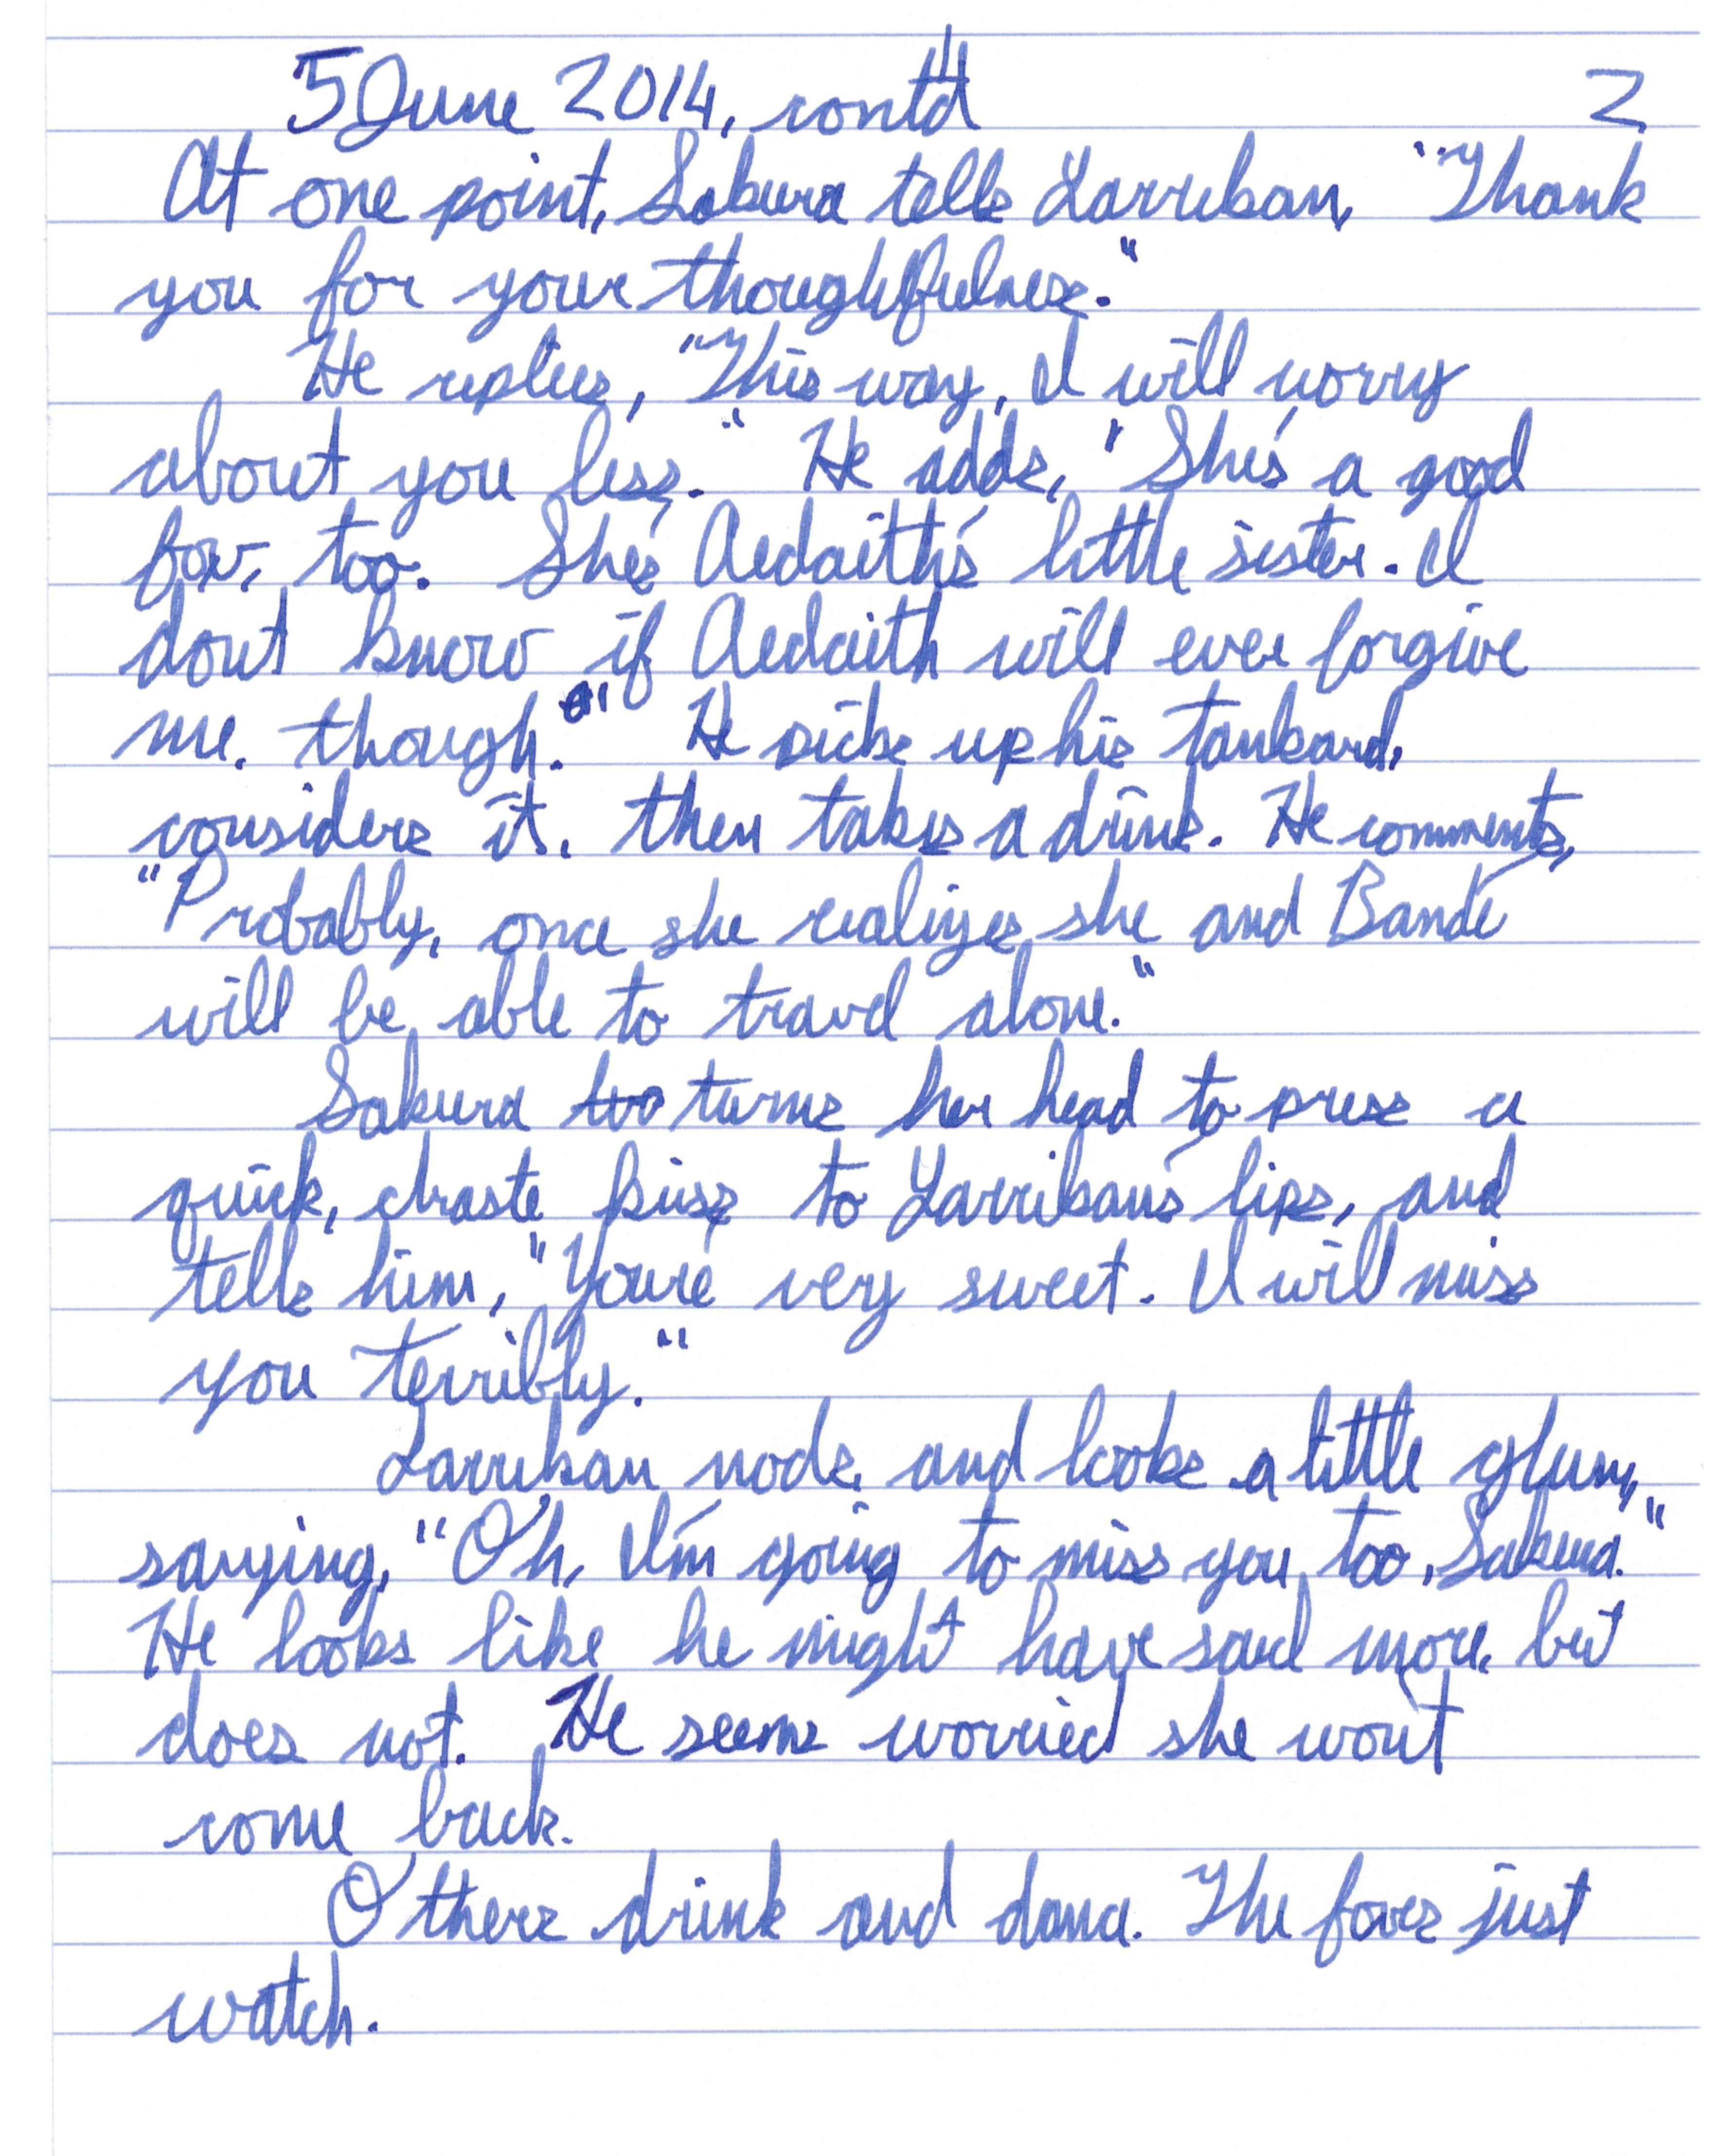 5 June 2014, contd 2
At one point, Sakura tells Larriban, "Thank
you for your thoughtfulness."
He replies, "This way, I will worry
about you less." He adds, "She's a good
fox, too. She's Aedaith's little sister. I
don't know if Aedaith will ever forgive
me, though." He picks up his tankard,
considers it, then takes a drink. He comments,
"Probably, once she realizes she and Bande
will be able to travel alone."
Sakura turns her head to press a
quick, chaste kiss to Larriban's lips, and
tells him, "You're very sweet. I will miss
you terribly."
Larriban nods, and looks a little glum,
saying, "Oh, I'm going to miss you, too, Sakura."
He looks like he might have said more, but
does not. He seems worried she won't
come back.
Others drink and dance. The foxes just
watch.